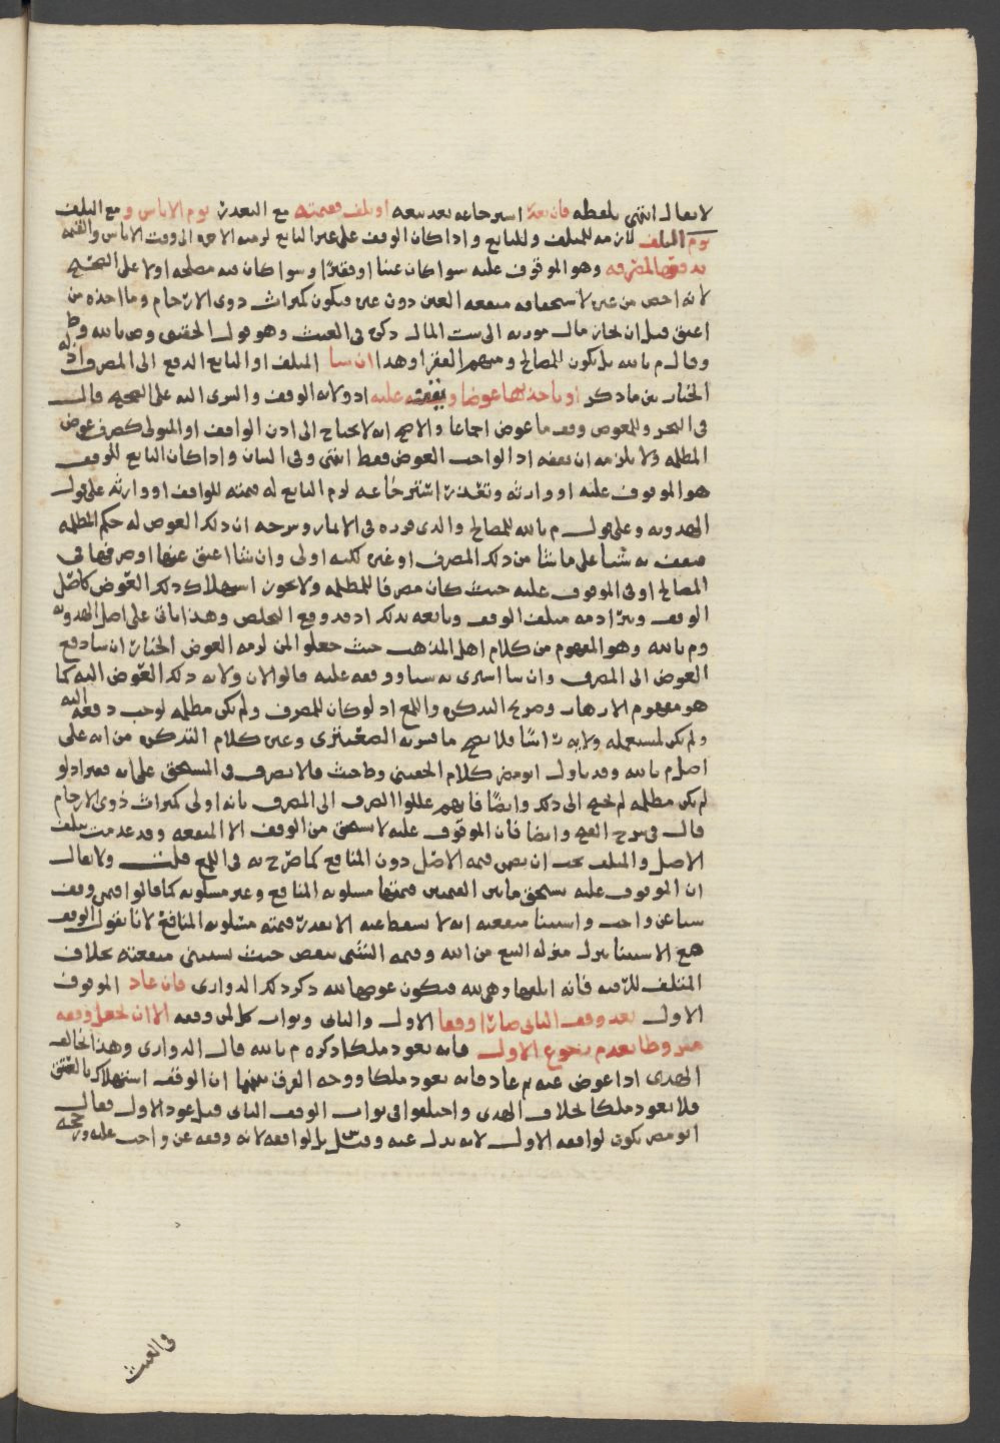 لا يقال انتهى بلفظه فان تعذر استرجاعه بعد بيعه او تلف فقيمته مع التعذر يوم الاياس ومع التلف
يوم التلف لازمه للمتلف وللبايع واذا كان الوقف على غير البايع لزمته الاجره الى وقت الاياس والقيمه
يدفعها لمصرفه وهو الموقوف عليه سوا كان غنيا او فقيرا وسوا كان فيه مصلحه اولا على الصحيح
لانه اخص من غيره لاستحقاقه منفعه العين دون غيره فيكون كميراث ذوي الارحام وما اخذه من
اعتق قبل ان يحاز مال مورثه الى بيت المال ذكره في الغيث وهو قول الحقيني وص بالله وط
وقال م بالله بل يكون للمصالح ومنهم الفقرا وهذا ان شا المتلف او البايع الدفع الى المصرف اذ له
الخيار بين ما ذكر او ياخذ بها عوضا ويقفه عليه اذ ولايه الوقف والشرى اليه على الصحيح قال
في البحر وللمعوض وقف ما عوض اجماعا والاصح انه لا يحتاج الى اذن الواقف او المتولي كصرف عوض
المظلمه ولا يلزمه ان يقفه اذ الواجب العوض فقط انتهى وفي البيان واذا كان البايع للوقف
هو الموقوف عليه او وارثه وتعذر استرجاعه لزم البايع له قيمته للواقف او وارثه على قول
الهدويه وعلى قول م بالله للمصالح والذي قرره في الاثمار وشرحه ان ذلك العوض له حكم المظلمه
فيقف به شيا على ما شا من ذلك المصرف او غيره لكنه اولى وان شا اعتق عنها او صرفها في
المصالح او في الموقوف عليه حيث كان مصرفا للمظلمه ولا يجوز استهلاك ذلك العوض كاصل
الوقف وتبرا ذمه متلف الوقف وبايعه بذلك اذ قد وقع التخلص وهذا باق على اصل الهدويه
وم بالله وهو المفهوم من كلام اهل المذهب حيث جعلوا لمن لزمه العوض الخيار ان شا دفع
العوض الى المصرف وان شا اشترى به شيا ووقفه عليه قالوا لان ولايه ذلك العوض اليه كما
هو مفهوم الازهار وصريح التذكره واللمع اذ لو كان للمصرف ولم يكن مظلمه لوجب دفعه اليه
ولم يكن لمستهلكه ولايه راسا فلا يصح ما قرره الصعيتري وغيره كلام التذكره من انه على
اصل م بالله وقد تاول ابو مضر كلام الحقيني وط حيث قالا يصرف في المستحق على انه فقير اذ لو
لم يكن مظلمه لم يحتج الى ذلك وايضا فانهم عللوا الصرف الى المصرف بانه اولى كميراث ذوي الارحام
قال في شرح الفتح وايضا فان الموقوف عليه لا يستحق من الوقف الا المنفعه وقد عدمت بتلف
الاصل والمتلف يجب ان يضمن قيمه الاصل دون المنافع كما صرح به في اللمع قلت ولا يقال
ان الموقوف عليه يستحق ما بين القيمتين قيمتها مسلوبه المنافع وغير مسلوبه كما قالوا فيمن وقف
شيا عن واجب واستثنا منفعته انه لا يسقط عنه الا بقدر قيمته مسلوبه المنافع لانا نقول الوقف
مع الاستثنا نزل منزله البيع من الله وقيمه الشي تنقص حيث تستثنى منفعته بخلاف
المتلف للرقبه فانه اتلفها وهي لله فيكون عوضها لله ذكر ذلك الدواري فان عاد الموقوف
الاول بعد وقف الثاني صارا وقفا الاول والثاني وثواب كل لمن وقفه الا ان يجعل وقفه
مشروطا بعدم رجوع الاول فانه يعود ملكا ذكره م بالله قال الدواري وهذا يخالف
الهدي اذا عوض عنه ثم عاد فانه يعود ملكا ووجه الفرق بينهما ان الوقف استهلاك بالعتق
فلا يعود ملكا بخلاف الهدي واختلفوا في ثواب الوقف الثاني قبل عود الاول فقال
ابو مضر يكون لواقفه الاول لانه بدل عنه وقيل بل لواقفه لانه وقفه عن واجب عليه ورجحه
في الغيث